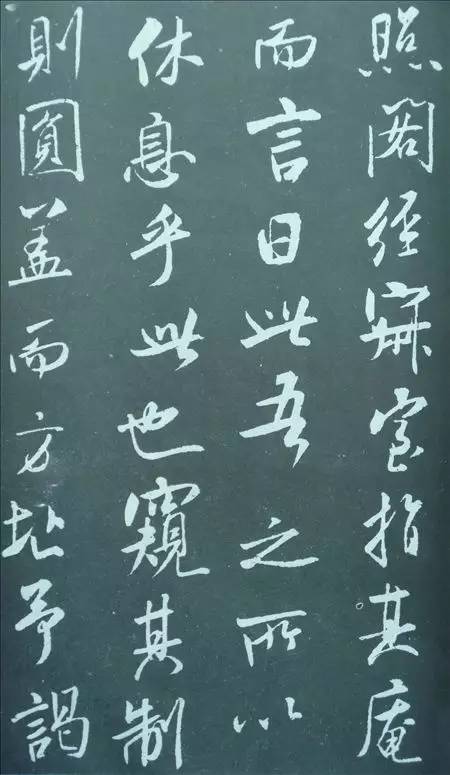 照閣經寢室指其庵
而言曰此吾之所以
休息乎此也窺其制
則圓蓋而方址予謁